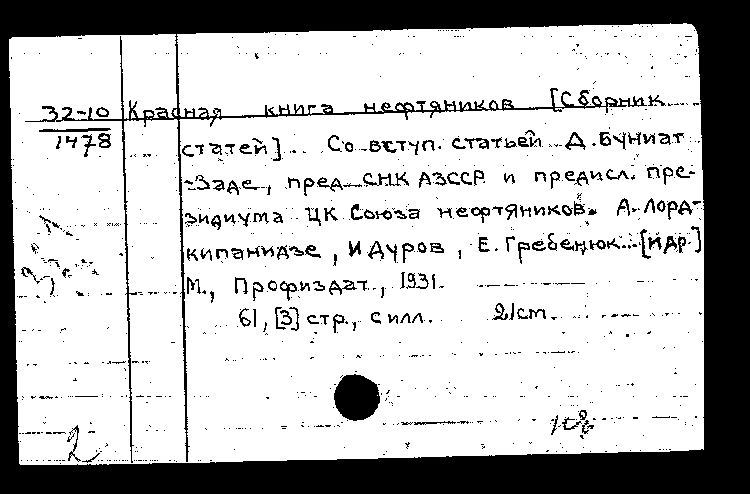 32-10 Красная книга нефтяников [Сборник
1478 статей]. Со вступ. статьей Д. Буниат
-Заде, пред. СНК АзССР и предисл. пре-
зидиума ЦК Союза нефтяников. А. Лорд-
кипанидзе, И Дуров, Е. Гребенюк... [и др.]
М., Профиздат, 1931.
61, [3] стр., с илл. 21 cm.
2